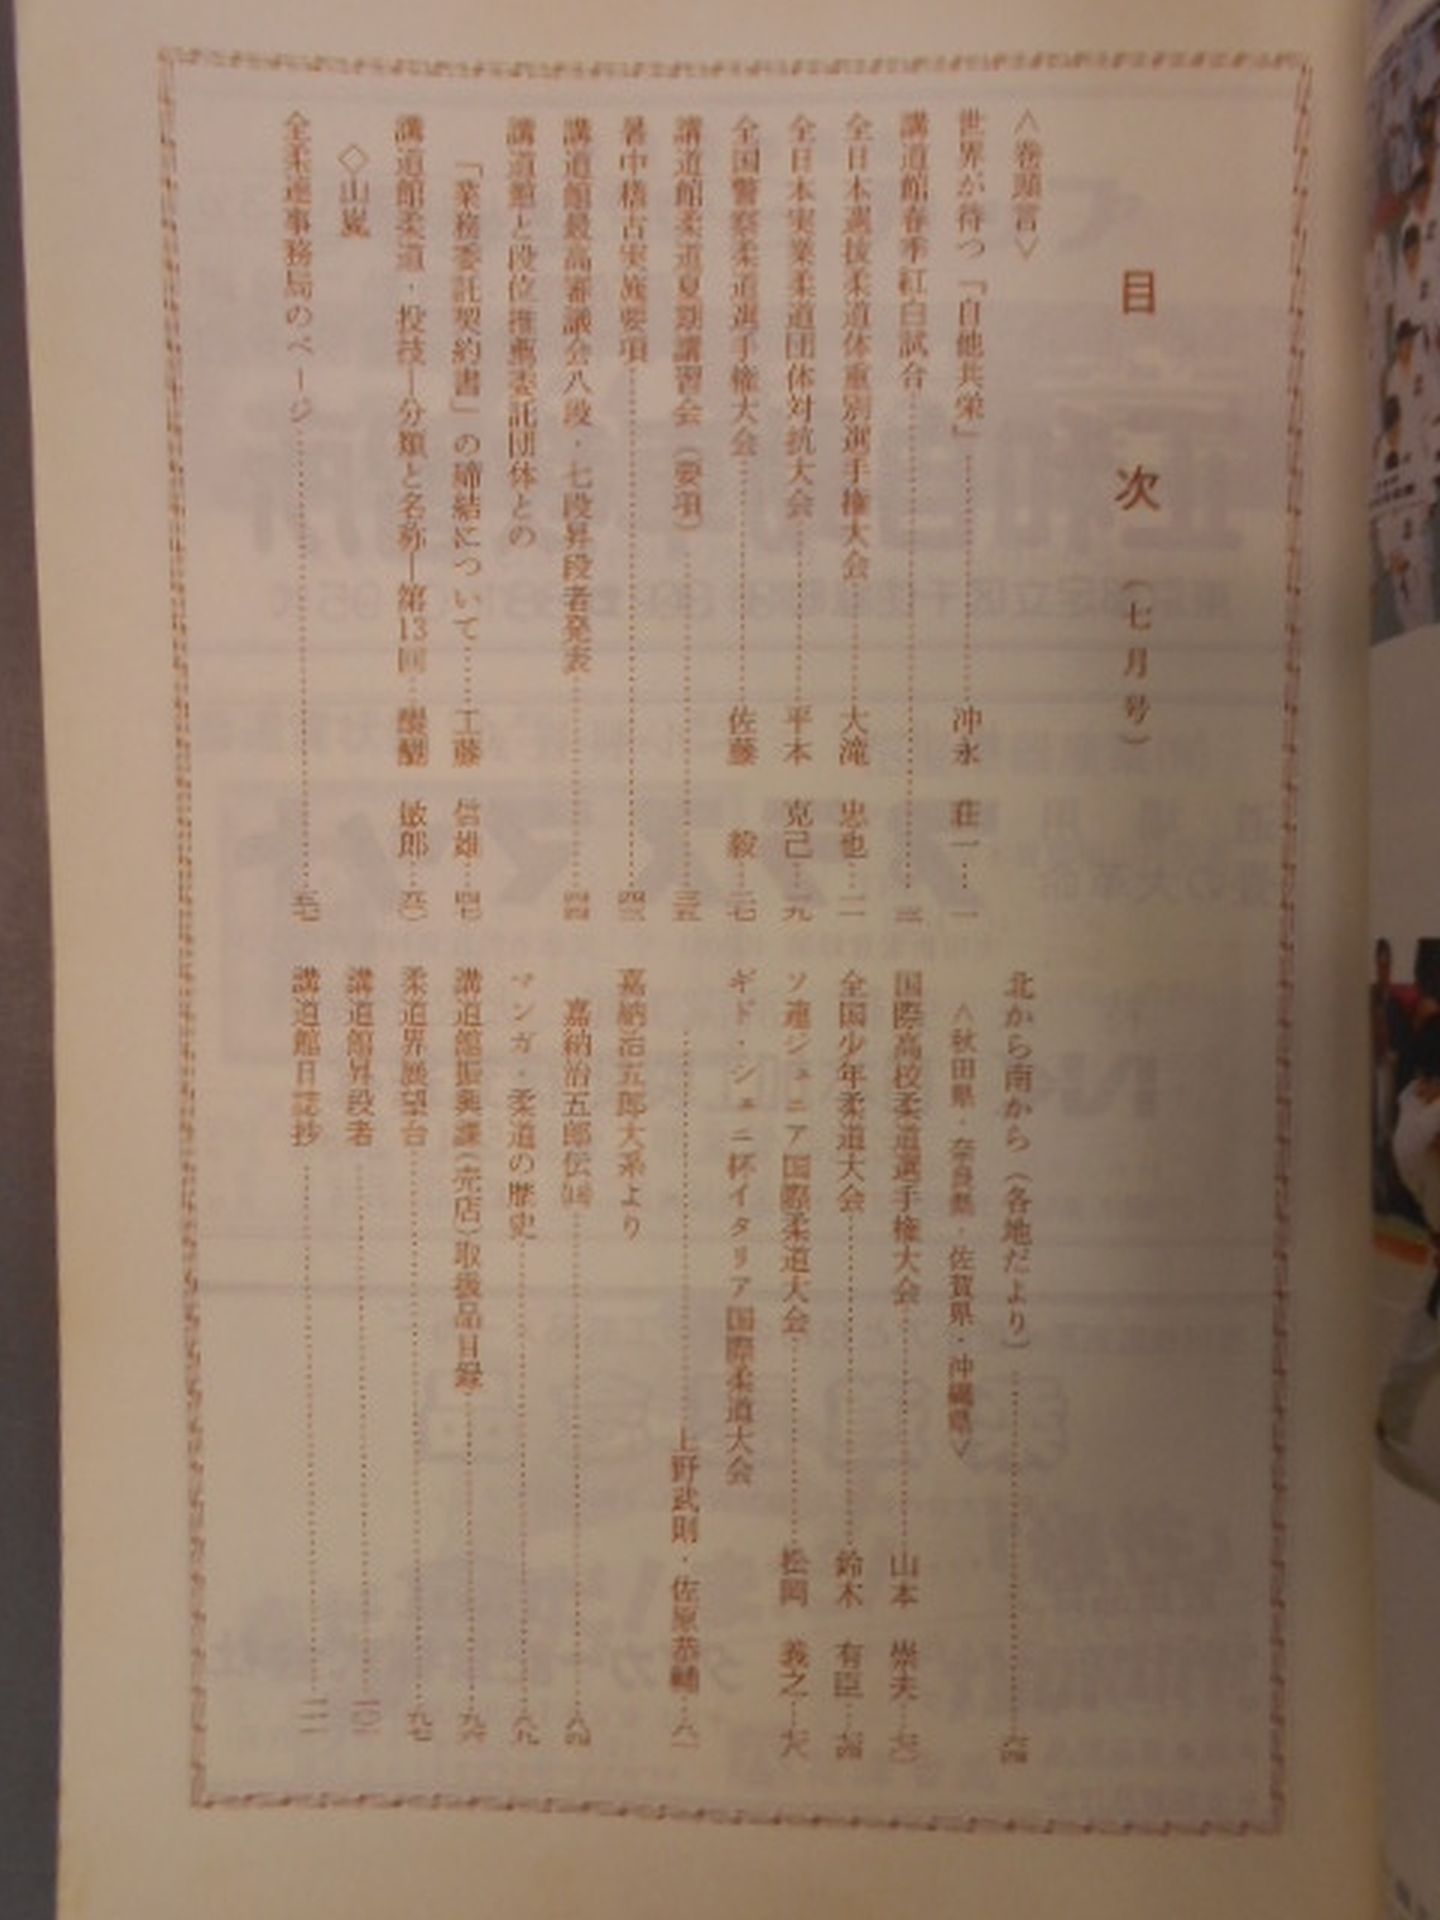 目次（七月号）
＜巻頭言＞
世界が待つ「自他共栄」………沖永 荘一…一
講道館春季紅白試合………三
全日本選抜柔道体重別選手権大会………大滝 忠也…二
全日本実業柔道団体対抗大会………平本 克己…九
全国警察柔道選手権大会………佐藤 毅
講道館柔道夏期講習会（要項）………三五
暑中稽古実施要項………四三
講道館最高審議会八段・七段昇段者発表………四四
講道館と段位推薦委託団体との
「業務委託契約書」の締結について………工藤 信雄…四七
講道館柔道・投技―分類と名称―第13回…醍醐 敏郎…五〇
◇山嵐
全柔連事務局のページ………五七
北から南から（各地だより）………六四
＜秋田県・奈良県・佐賀県・沖縄県＞
国際高校柔道選手権大会………山本 崇夫
全国少年柔道大会………鈴木 有臣
ソ連ジュニア国際柔道大会………松岡 義之…七六
ギド・シェニ杯イタリア国際柔道大会
………上野武則・佐原恭輔…八一
嘉納治五郎大系より
嘉納治五郎伝………八四
マンガ・柔道の歴史………八九
講道館振興課（売店）取扱品目録………九六
柔道界展望台………九七
講道館昇段者………一〇一
講道館日誌抄………一一一